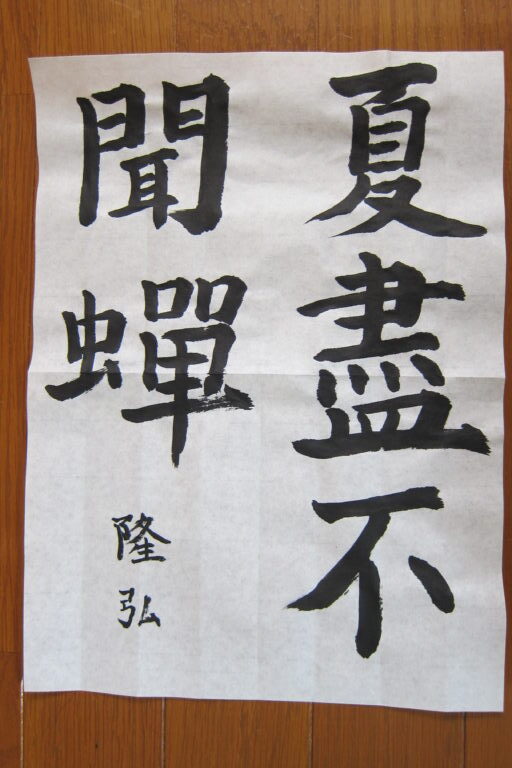 夏盡不
聞蟬
隆弘